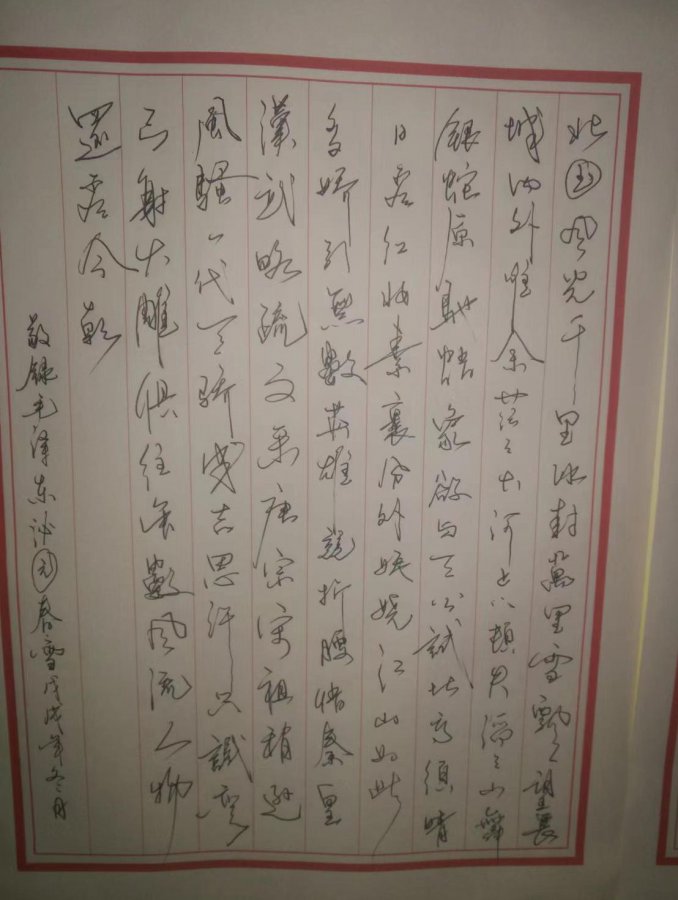 北国风光千里冰封萬里雪飘望長
城内外惟余莽々大河上下頓失滔々山舞
银蛇原馳蜡象欲与天公試比高須晴
日看红妆素裹分外妖娆江山如此
多娇引無數英雄競折腰惜秦皇
漢武略输文采唐宗宋祖稍遜
風騷一代天骄成吉思汗只識弯
弓射大雕俱往矣數风流人物
還看今朝
敬録毛泽东沁园春雪戊戌年冬月